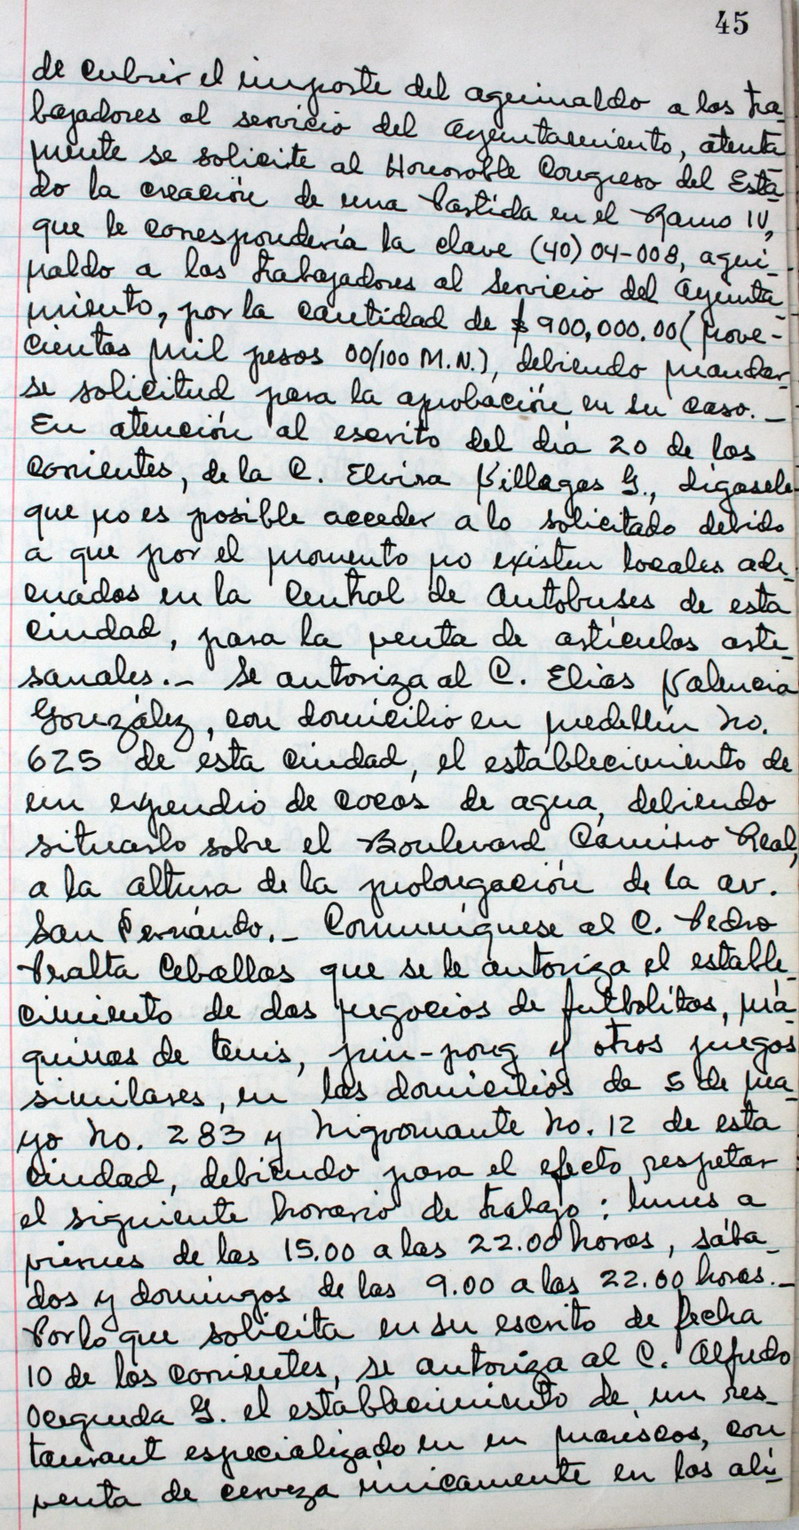 45
de cubrir el importe del aguinaldo a los tra-
bajadores al servicio del Ayuntamiento, atenta
mente se solicite al Honorable Congreso del Esta-
do la creación de una Partida en el Ramo IV,
que le correspondería la clave (40) 04-008, agui-
naldo a los trabajadores al Servicio del Ayunta-
miento, por la cantidad de $ 900,000.00 (nove-
cientos mil pesos 00/100 M.N.), debiendo mandar-
se solicitud para la aprobación en su caso._
En atención al escrito del día 20 de los
corrientes, de la C. Elvira Villegas G., dígasele
que no es posible acceder a lo solicitado debido
a que por el momento no existen locales ade-
cuados en la Central de Autobuses de esta
ciudad, para la venta de artículos arte-
sanales._ Se autoriza al C. Elías Valencia
González, con domicilio en Medellín No.
625 de esta ciudad, el establecimiento de
un expendio de cocos de agua, debiendo
situarlo sobre el Boulevard Camino Real,
a la altura de la prolongación de la av.
San Fernándo._ Comuníquese al C. Pedro
Peralta Ceballos que se le autoriza el estable-
cimiento de dos negocios de futbolitos, má-
quinas de tenis, pin-pong y otros juegos
similares, en los domicilios de 5 de ma-
yo No. 283 y Nigromante No. 12 de esta
ciudad, debiendo para el efecto respetar
el siguiente horario de trabajo: lunes a
viernes de las 15.00 a las 22.00 horas, sába-
dos y domingos de las 9.00 a las 22.00 horas._
Por lo que solicita en su escrito de fecha
10 de los corrientes, se autoriza al C. Alfredo
Oceguda G. el establecimiento de un res-
taurant especializado en en mariscos, con
venta de cerveza únicamente en los ali-